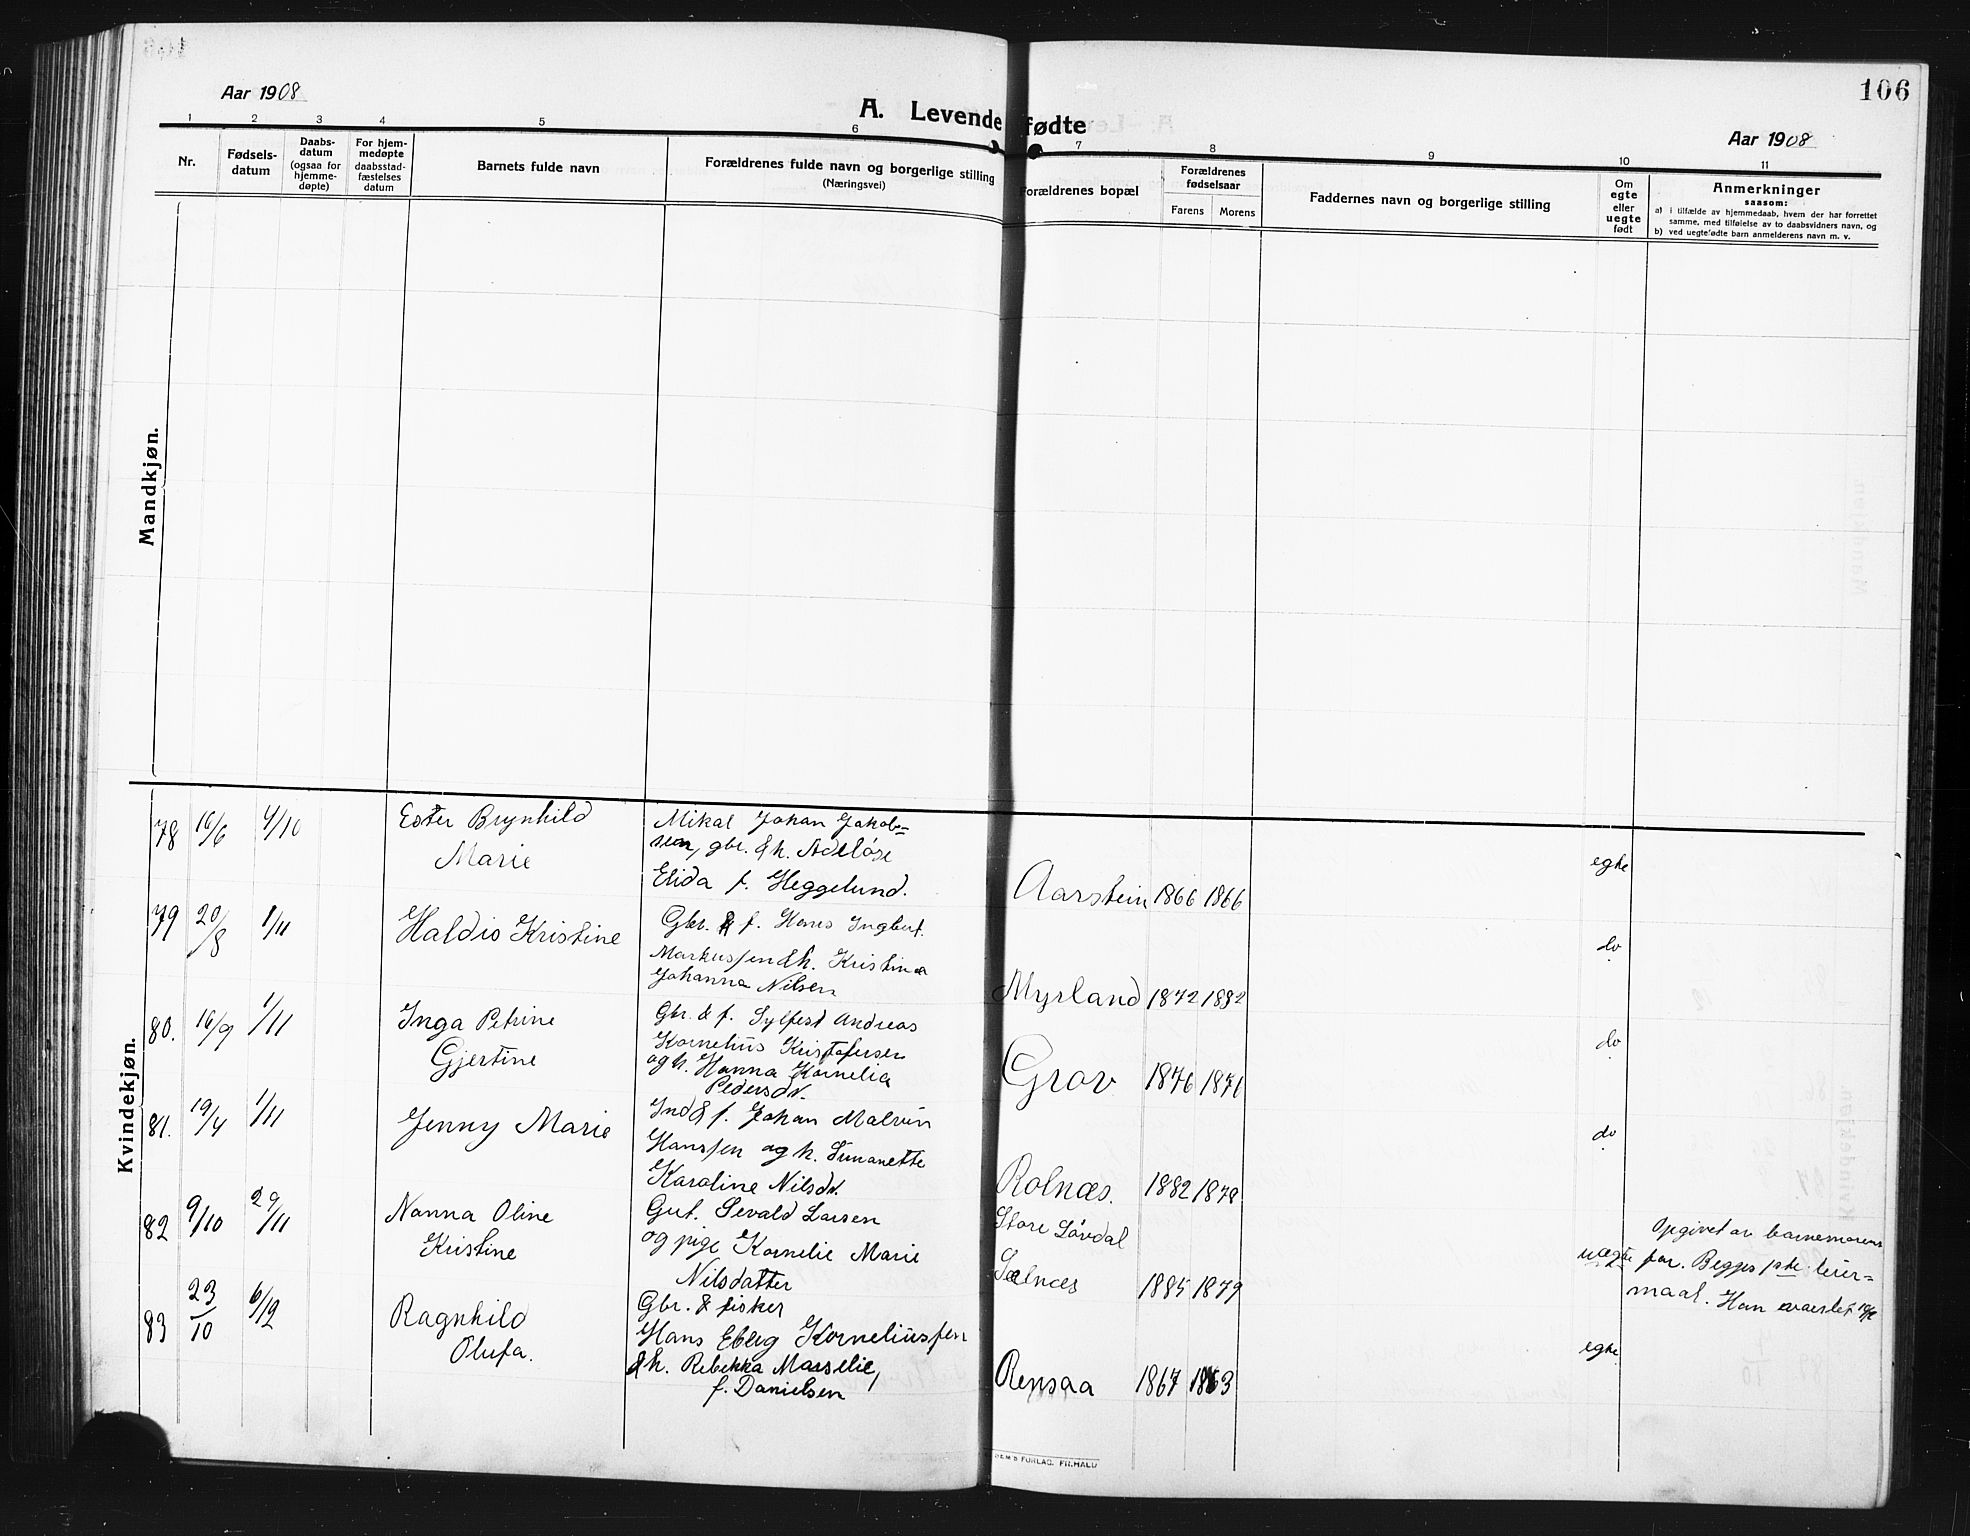 106
Aar 1908
A. Levende fødte
Aar 1908
1 2 3 4 5 6 7 8 9 10 11
Nr.
Fødsels-
datum
Daabs-
datum
(ogsaa for
hjemme-
døpte)
For hjem-
medøpte
daabsstad-
fæstelses
datum
Barnets fulde navn
Forældrenes fulde navn og borgerlige stilling
(Næringsvei)
Forældrenes bopæl
Forældrenes
fødselsaar
Farens Morens
Faddernes navn og borgerlige stilling
Om
egte
eller
uegte
født
Anmerkninger
saasom:
a) i tilfælde av hjemmedaab, hvem der har forrettet
samme, med tilføielse av to daabsvidners navn, og
b) ved uegtefødte barn anmelderens navn m. v.
Mandkjøn.
Kvindekjøn.
78 16/6 4/10 Ester Brynhild
Marie
Mikal Johan Jakob-
sen, gbr. & h. Adelöse
Elida f. Heggelund.
Aarstein 1866 1866 egte
79 20/8 1/11 Haldis Kristine
Gbr. & f. Hans Ingbert.
Markussen & h. Kristine
Johanna Nilsen
Myrland 1872 1882 do
80. 16/9 1/11 Inga Petrine
Gjertine
Gbr. & f. Sylfest Andreas
Kornelius Kristofersen
og h. Hanna Kornelia
Pedersdt.
Grov 1876 1871 do
81. 19/4 1/11 Jenny Marie
Ind & f. Johan Malvin
Hanssen og h. Simanette
Karoline Nilsdt.
Rolnæs. 1882 1878 do
82 9/10 29/11 Nanna Oline
Kristine
Gut. Sevald Larsen
og pige Kornelie Marie
Nilsdatter
Store Lövdal
Salnæs 1885 1879 uegte
Opgivet av barnemorens
far. Begges 1ste leier-
maal. Han
83 23/10 6/12 Ragnhild
Olufa.
Gbr. & fisker
Hans Eberg Korneliussen
& h. Rebekka Marselie,
f. Danielsen
Rensaa 1867 1863 egte
FORLAG. FR.HALD